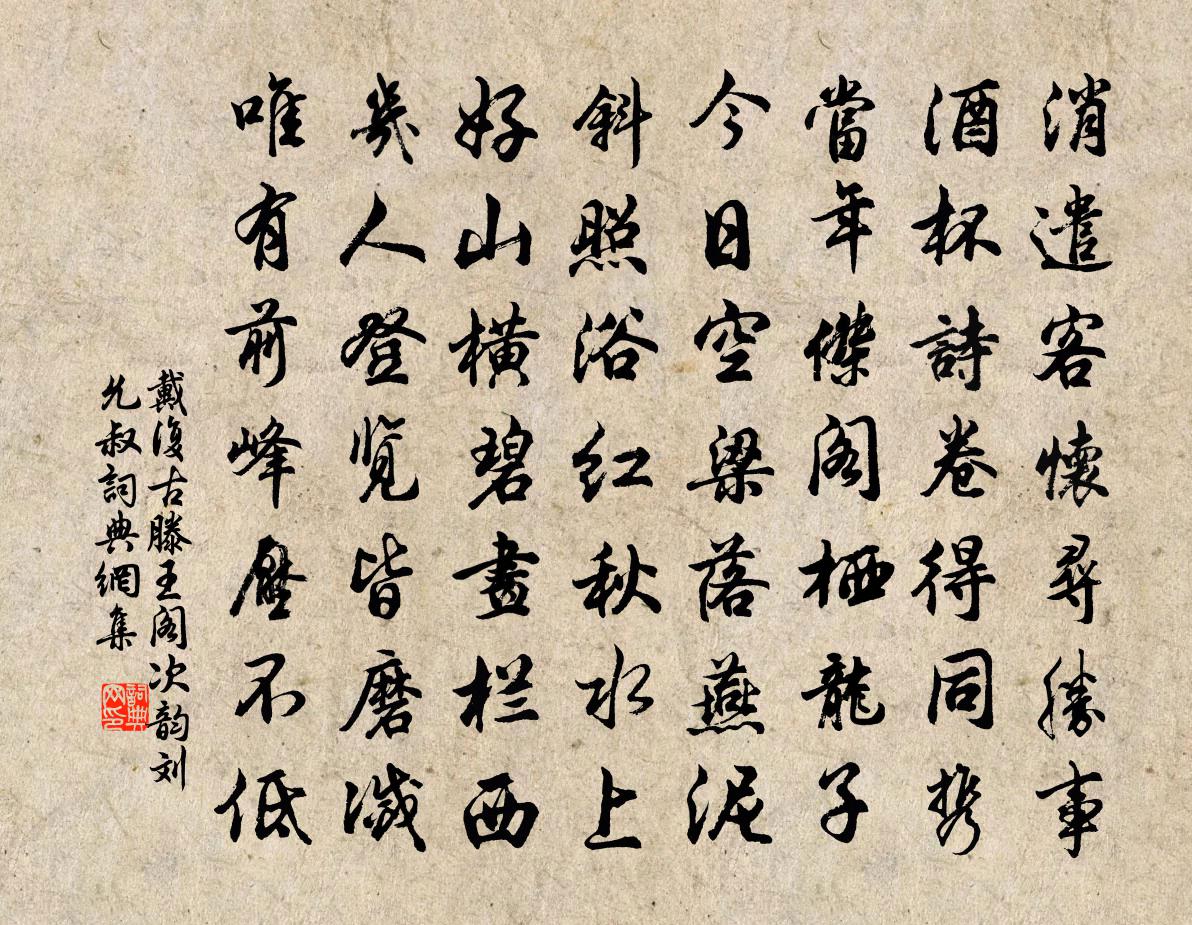 消遣客懷尋勝事
酒杯詩卷得同携
當年傑閣栖龍子
今日空梁落燕泥
斜照浴红秋水上
好山橫碧畫栏西
幾人登览皆磨滅
唯有前峰壓不低
戴復古滕王阁次韵刘
允叔詞典網集
詞典
网印